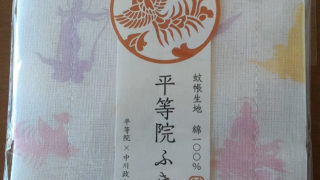 蚊帳生地 綿一〇〇%
平等院ふき
平等院×中川政